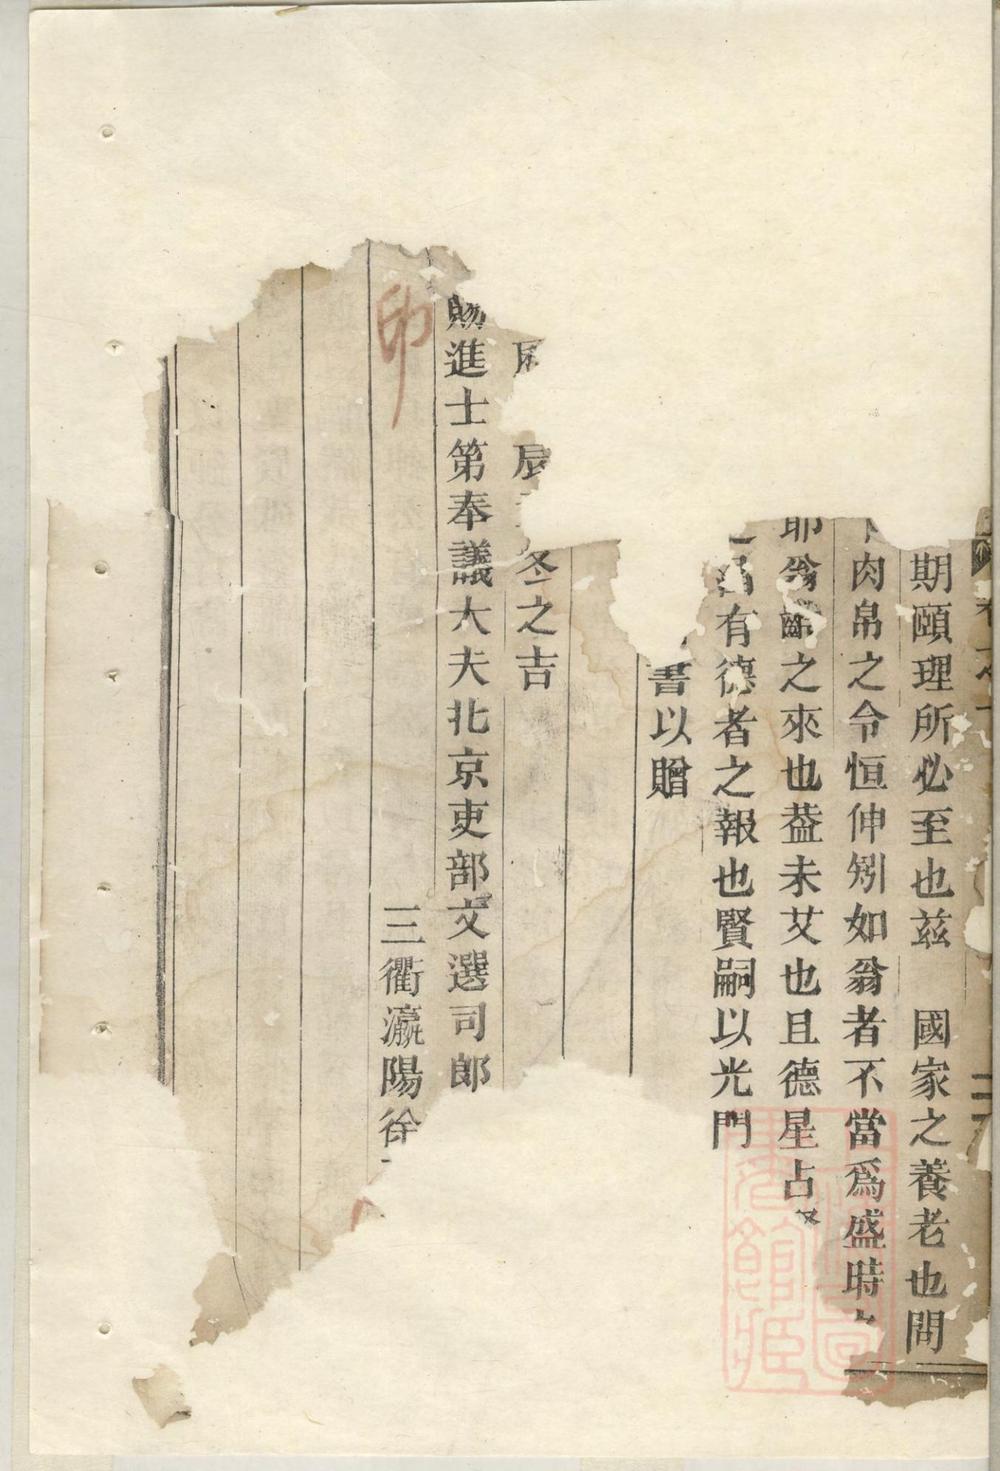 期頤理所必至也茲　國家之養老也問
肉帛之令恒伸矧如翁者不當爲盛時
耶翁之來也葢未艾也且德星占
有德者之報也賢嗣以光門
書以贈
辰冬之吉
賜進士第奉議大夫北京吏部文選司郎
三衢瀛陽徐
印